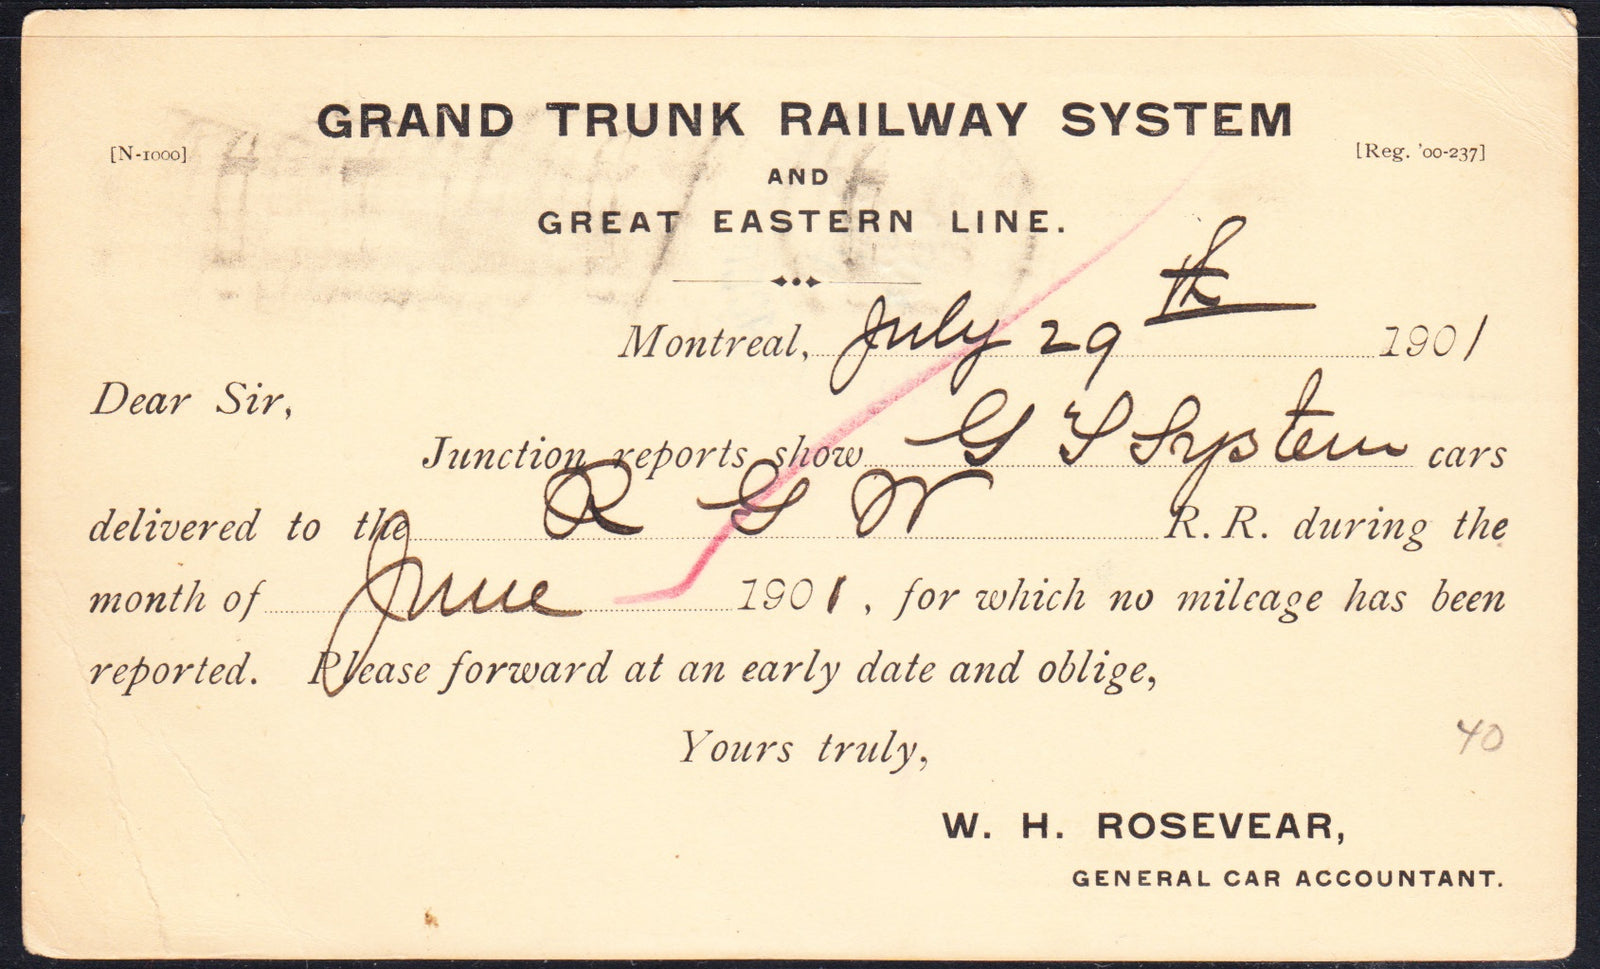 GRAND TRUNK RAILWAY SYSTEM
[N-1000] [Reg. '00-237]
AND
GREAT EASTERN LINE.
Montreal, July 29th 1901
Dear Sir,
Junction reports show G T System cars
delivered to the R G W R. R. during the
month of June 1901, for which no mileage has been
reported. Please forward at an early date and oblige,
Yours truly,
40
W. H. ROSEVEAR,
GENERAL CAR ACCOUNTANT.